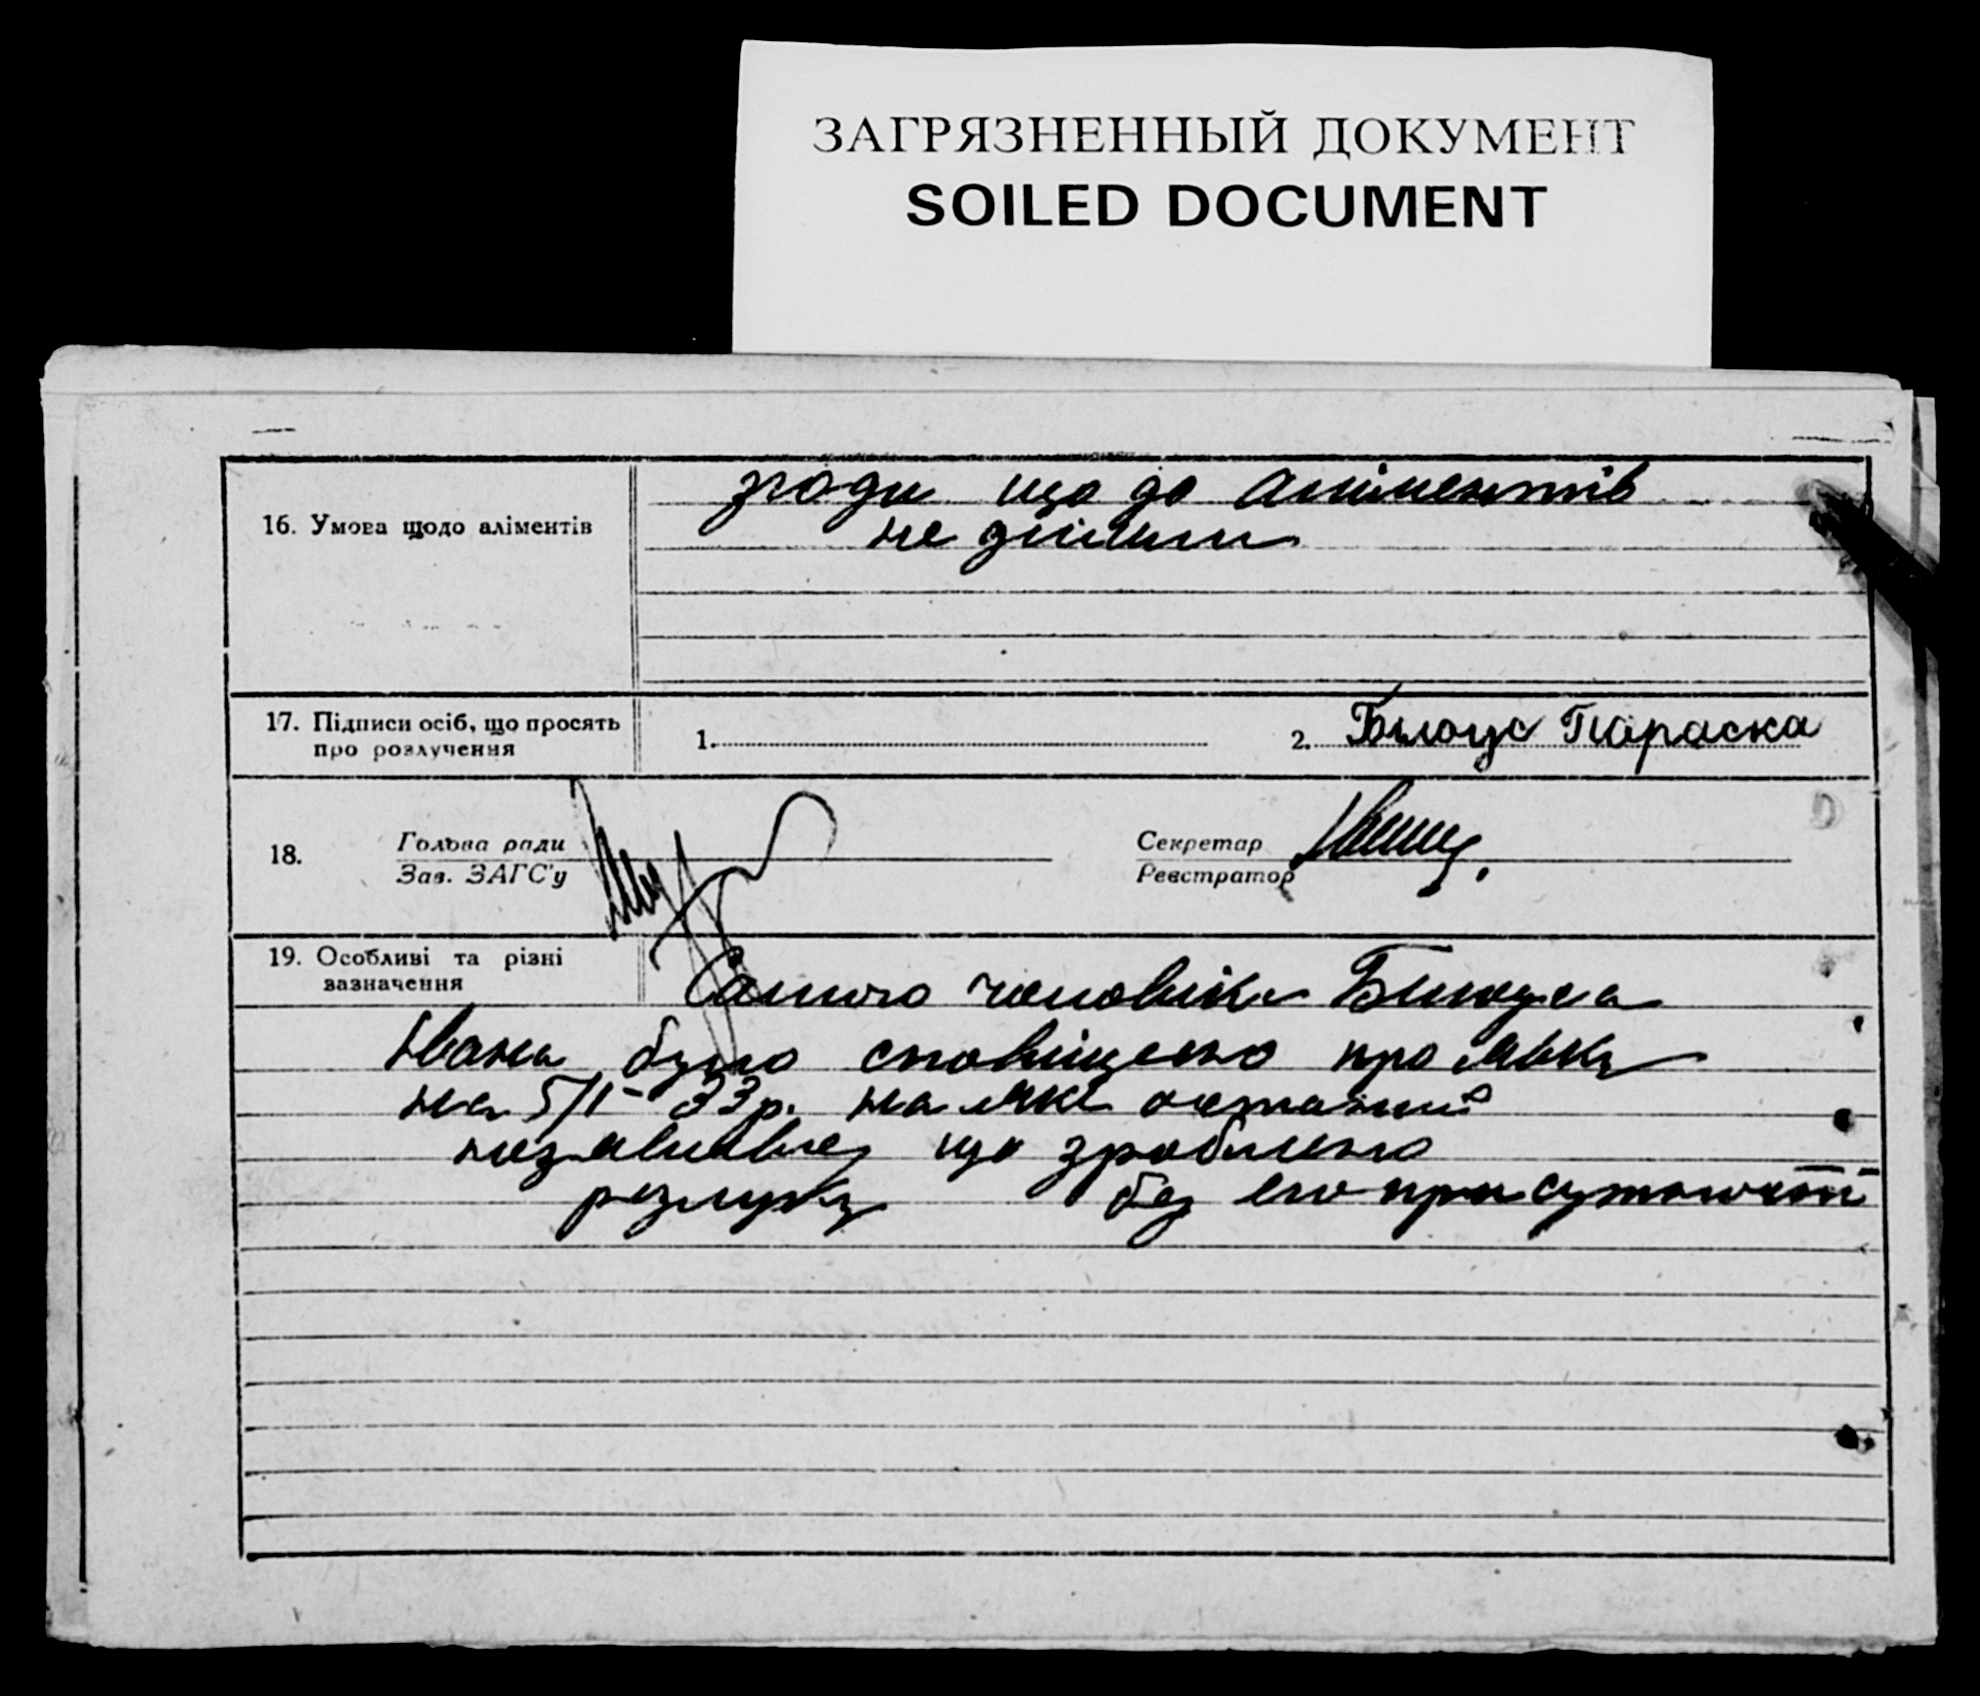 ЗАГРЯЗНЕННЫЙ ДОКУМЕНТ
SOILED DOCUMENT
16. Умова щодо аліментів
згоди що до аліментів
не дійшли
17. Підписи осіб, що просять
про розлучення
1.
2. Білоус Параска
18.
Голова ради
Зав. ЗАГС'у
Секретар
Реєстратор
19. Особливі та різні
зазначення
Самого чоловіка Білоуса
Івана було сповіщено про явку
на 5/I- 33 р. на яке останній
незявився що зроблено
розлуку без его присутности